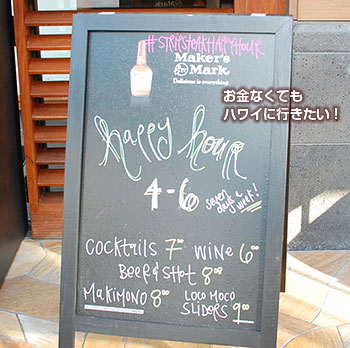 #STRIPSTEAKHAPPYHOUR
Maker's
Mark
Delicious is everything.
お金なくても
ハワイに行きたい！
happy hour
4-6
seven
days a
week!
COCKTAILS 7⁰⁰ WINE 6⁰⁰
BEER & SHOT 8⁰⁰
MAKIMONO 8⁰⁰ LOCO MOCO
SLIDERS 9⁰⁰